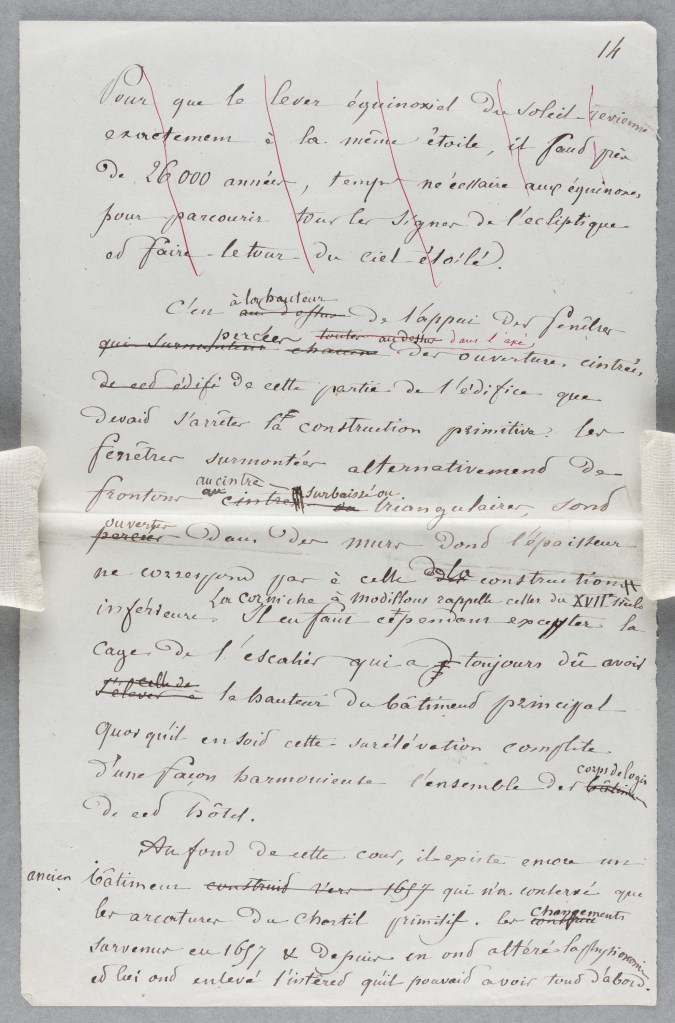 14
Pour que le lever équinoxial du soleil revienne
exactement à la même étoile, il faud près
de 26000 années, temps nécessaire aux équinoxes
pour parcourir tous les signes de l'écliptique
ed faire le tour du ciel étoilé.
à la hauteur
C'en au dessus de l'appui des fenêtres
percées toutes au dessus dans l'axe
qui surmontent chacune des ouvertures cintrées,
de ced édifi de cette partie de l'édifice que
devaid s'arrêter la construction primitive. les
fenêtres surmontées alternativemend de
au cintre surbaissé ou
frontons au cintre ou triangulaires, sond
ouvertes
percées dans des murs dond l'épaisseur
ne correspond pas à celle de la construction
La corniche à modillons rappelle celles du XVIIe siècle
inférieure. Il en faut cependant excepter la
cage de l'escalier qui a toujours dû avoir
celle de
s'élever à la hauteur du bâtimend principal
Quoiqu'il en soid cette surélévation complète
corps de logis
d'une façon harmonieuse l'ensemble des bâtim
de ced hôtel.
Au fond de cette cour, il existe encore un
ancien bâtiment construid vers 1657 qui n'a conservé que
changements
les arcatures du chartil primitif. les
survenus en 1657 & depuis en ond altéré la physionomie
ed lui ond enlevé l'intéred qu'il pouvaid avoir toud d'abord.